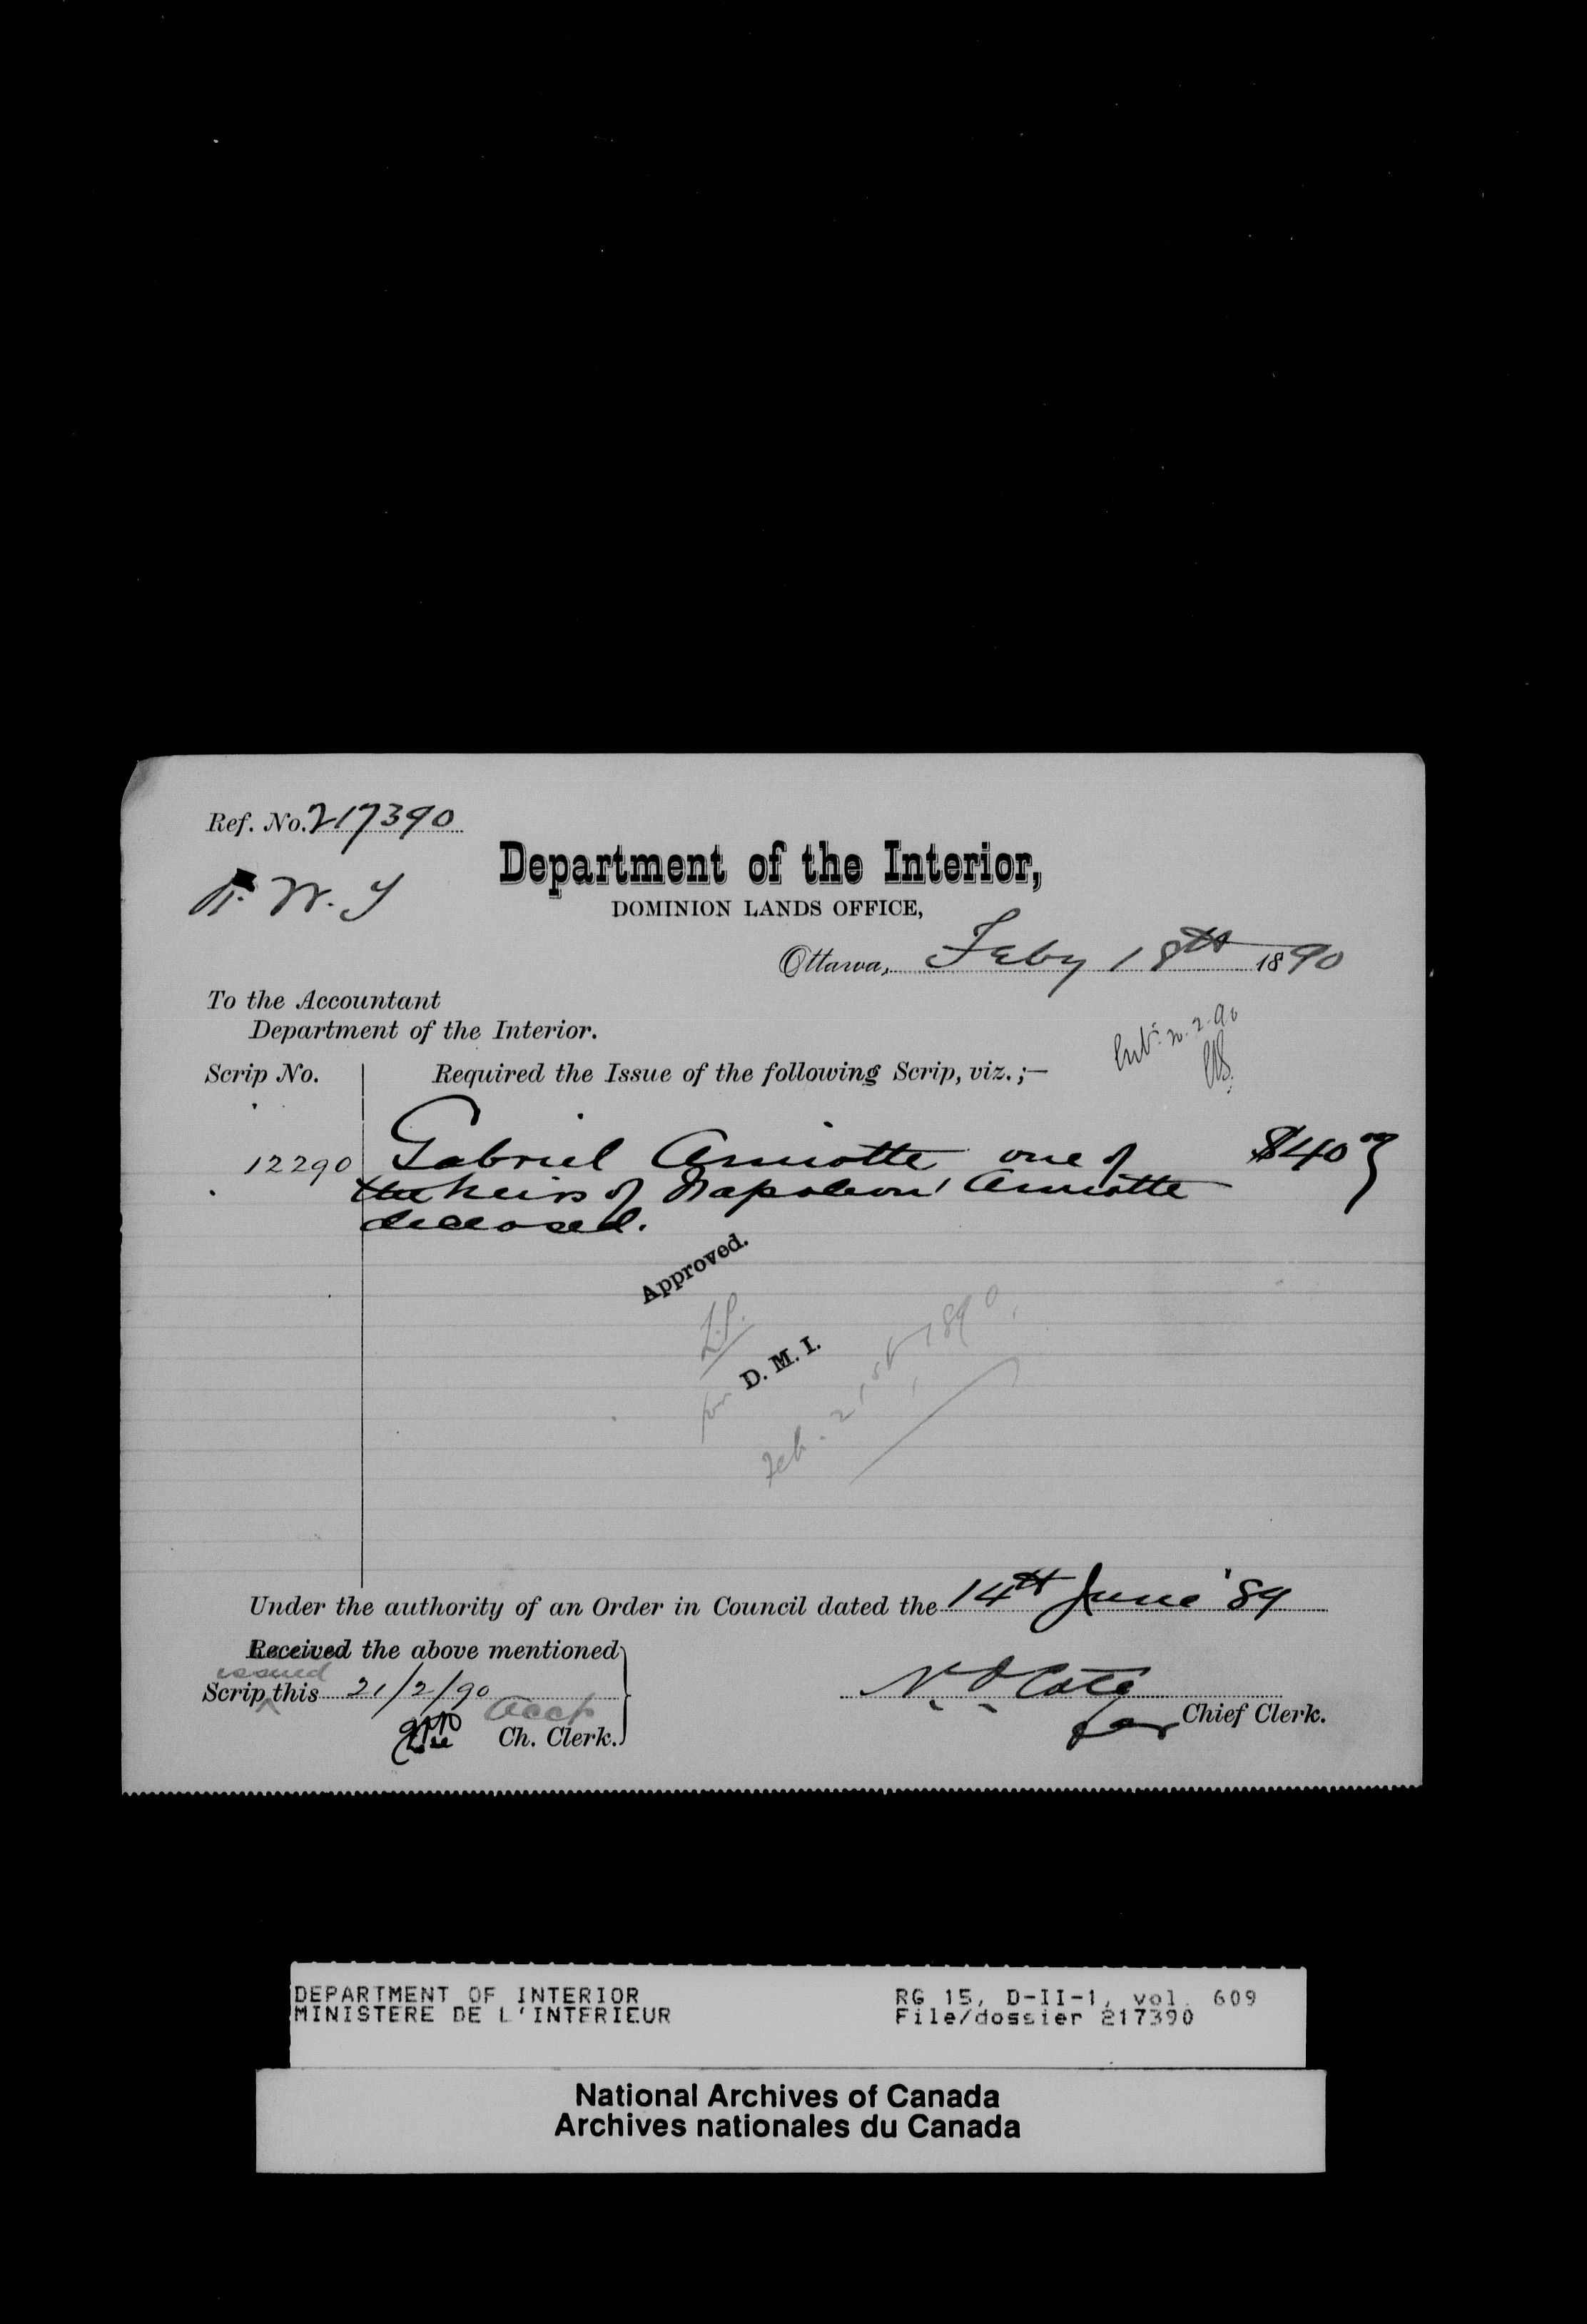 Ref. No. 217390
Department of the Interior,
DOMINION LANDS OFFICE,
Ottawa, Feby 18th 1890
To the Accountant
Department of the Interior.
Scrip No. Required the Issue of the following Scrip, viz. ;—
12290 Gabriel Amiotte one of $40 00
the heirs of Napoleon Amiotte
deceased.
Approved.
for D. M. I.
Feb. 21st, 1890.
Under the authority of an Order in Council dated the 14th June '89
Received the above mentioned
issued
Scrip this 21/2/90
Acct
Ch. Clerk.
N. O. Coté
for Chief Clerk.
DEPARTMENT OF INTERIOR
MINISTERE DE L'INTERIEUR
RG 15, D-II-1, vol. 609
File/dossier 217390
National Archives of Canada
Archives nationales du Canada